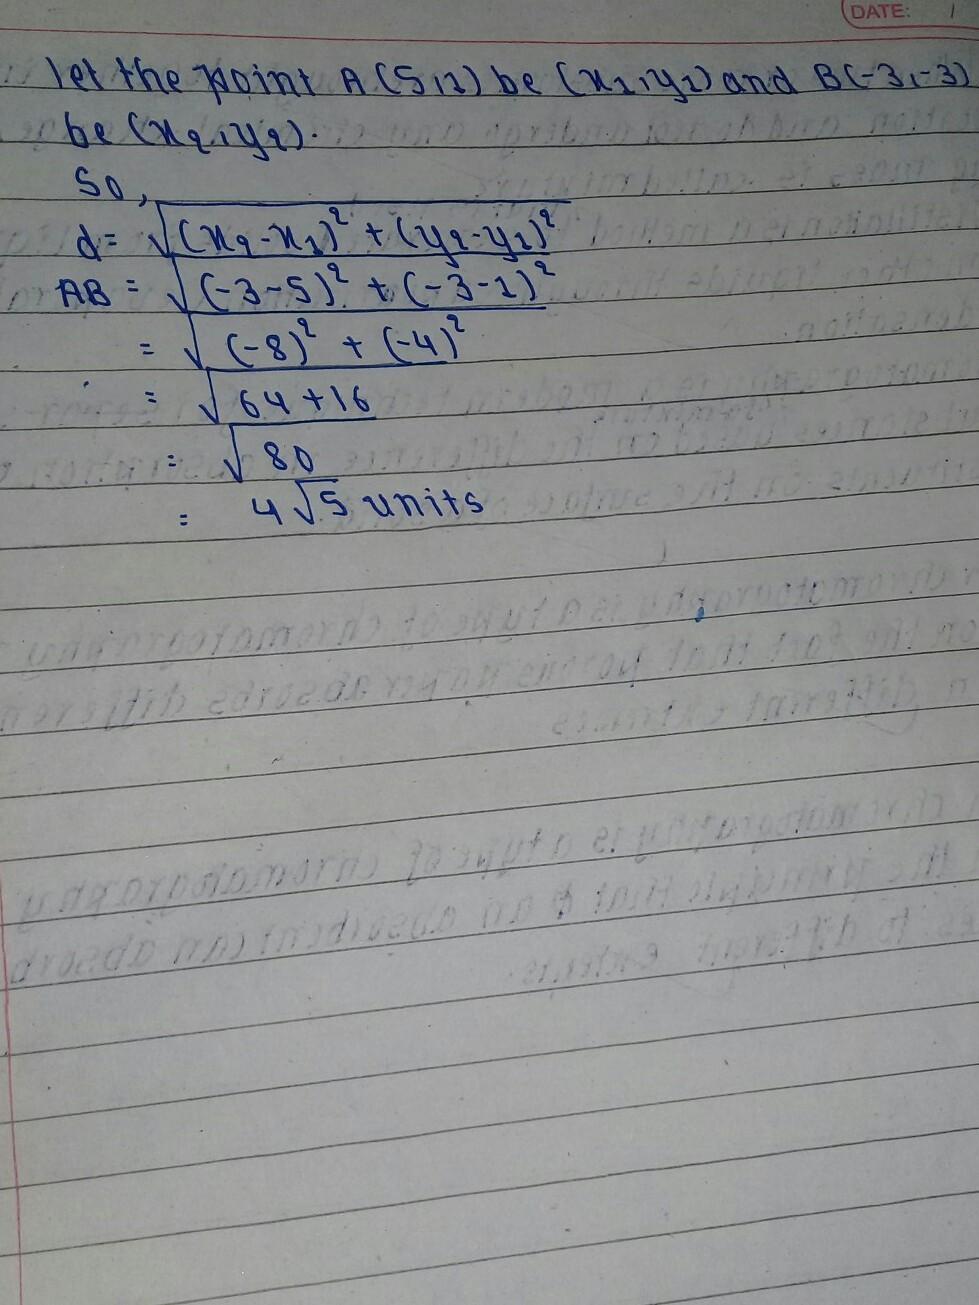 DATE:
let the point A (5,1) be (x₁,y₁) and B(-3,-3)
be (x₂,y₂).
So,
d = √(x₂-x₁)² + (y₂-y₁)²
AB = √(-3-5)² + (-3-1)²
= √(-8)² + (-4)²
= √64+16
= √80
= 4√5 units